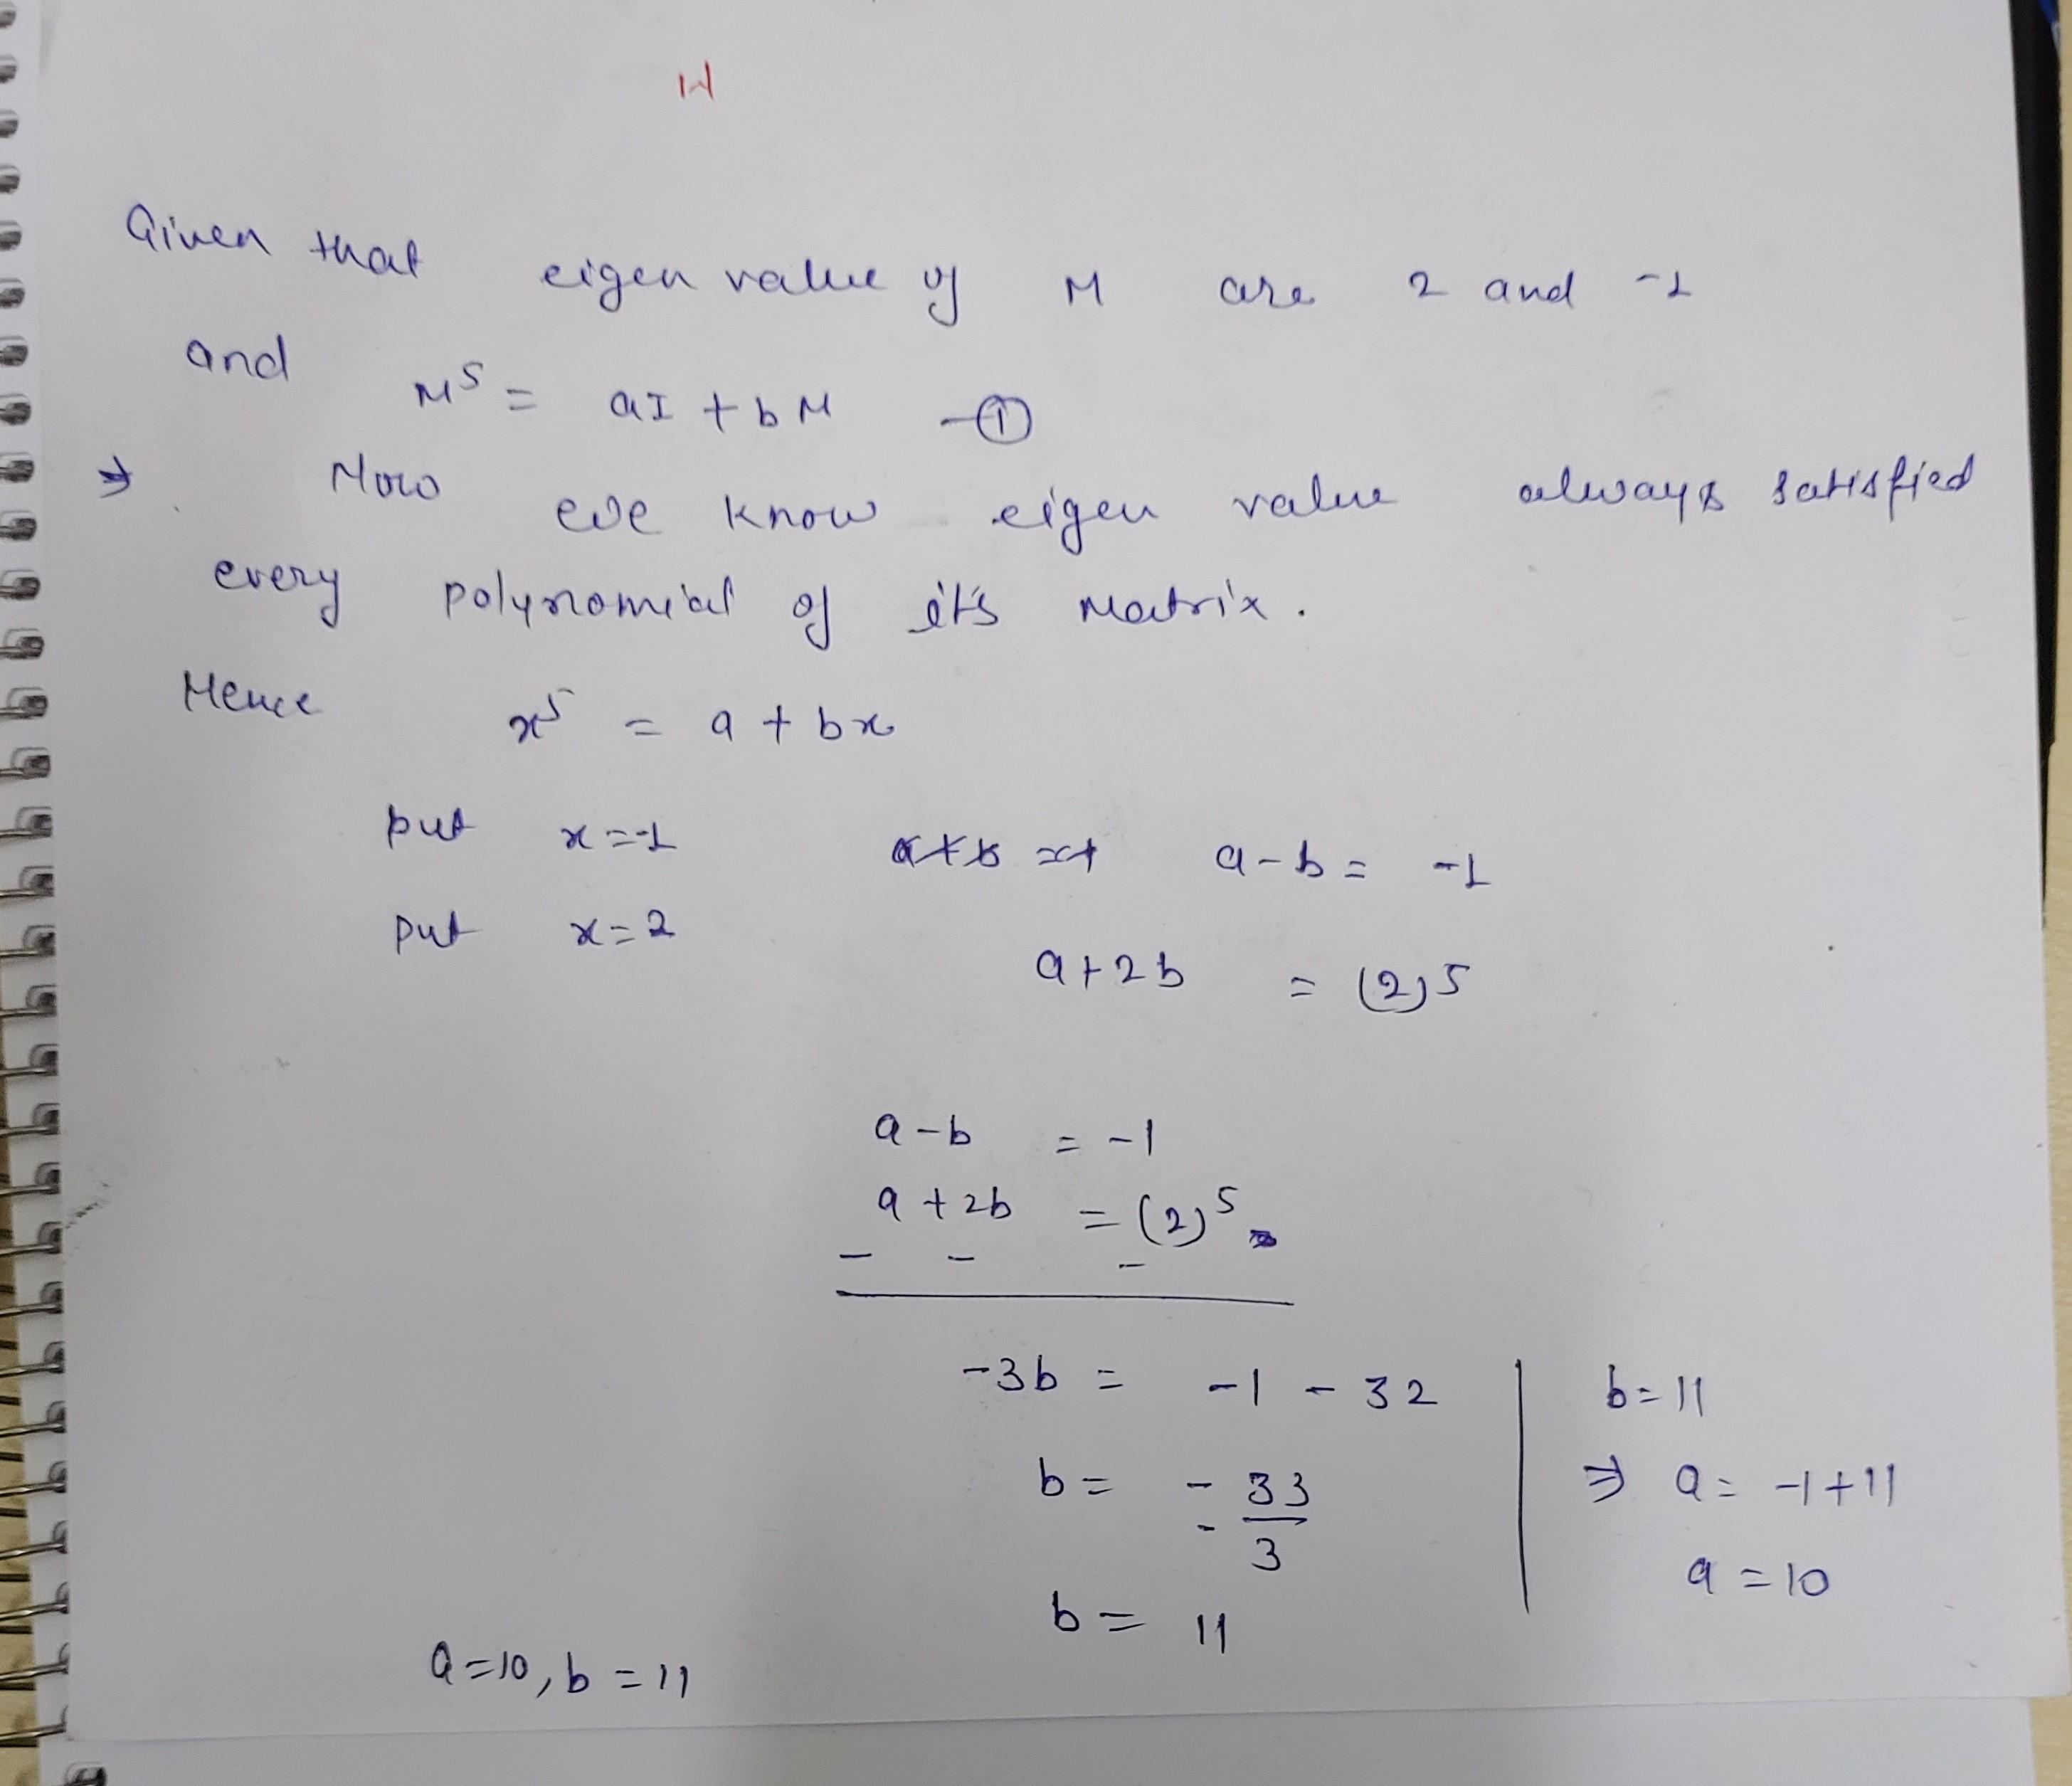 Given that eigen value of M are 2 and -1
and M⁵ = aI + bM -①
⇒ Now we know eigen value always satisfied
every polynomial of it's matrix.
Hence x⁵ = a + bx
put x=-1 a-b = -1
put x=2 a+2b = (2)⁵
a-b = -1
a+2b = (2)⁵
- - -
-3b = -1 - 32
b = -33/-3
b = 11
b=11
⇒ a = -1+11
a=10
a=10, b=11